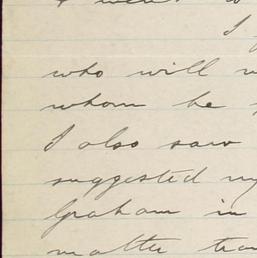 I went to
I
who will
whom he
I also saw
suggested my
Graham in
matter